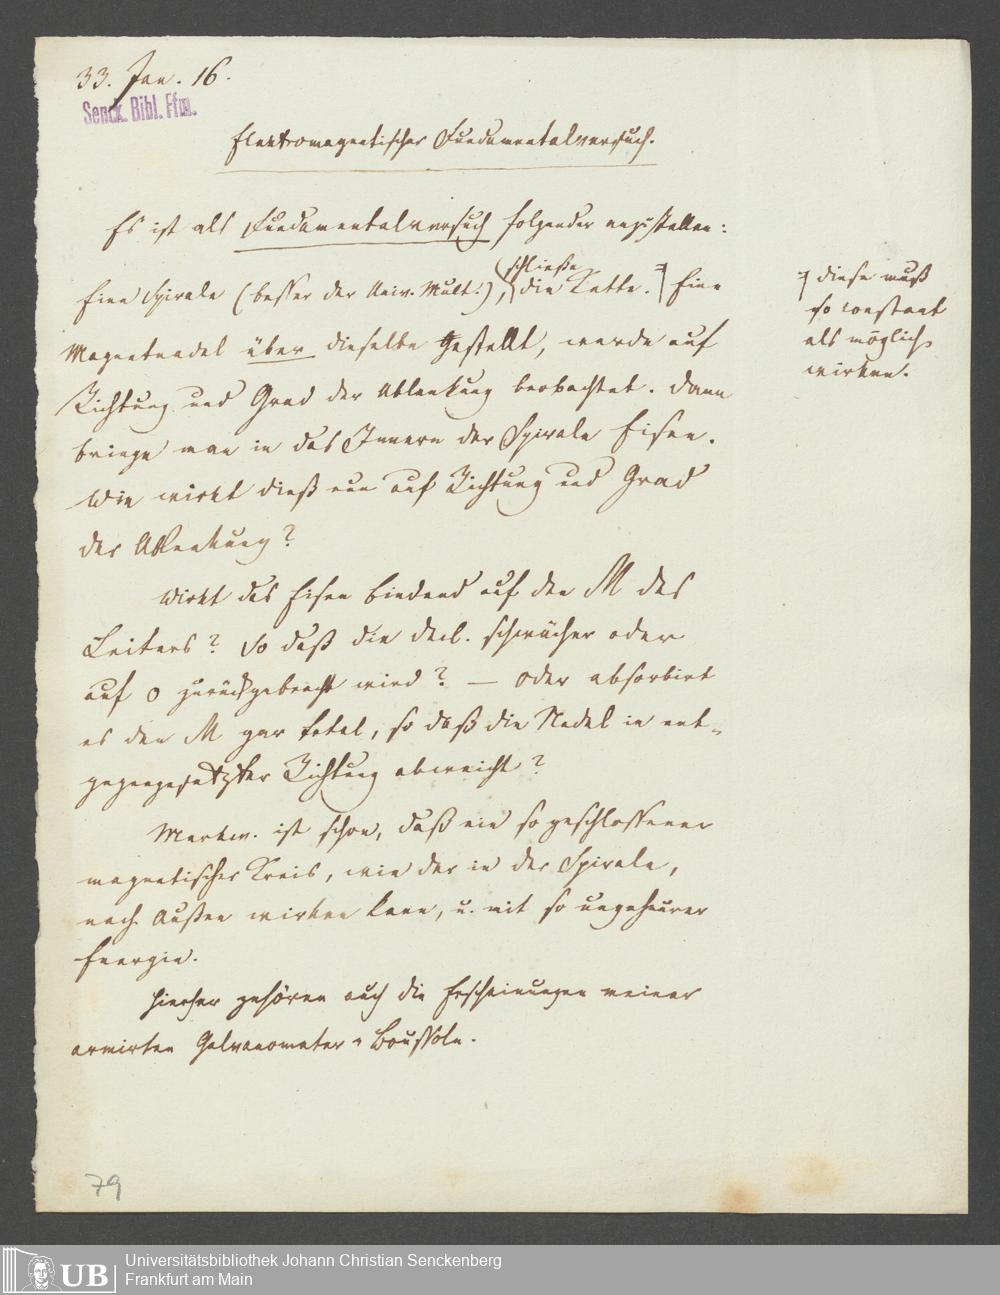 33. Jan. 16.
Senck. Bibl. Ffm.
Elektromagnetischer Fundamentalversuch.
Es ist als Fundamentalversuch folgender anzustellen:
schließe
Eine Spirale (besser der Univ. Mult.), die Kette. Eine
diese muß
so constant
als möglich
wirken.
Magnetnadel über dieselbe gestellt, werde auf
Richtung und Grad der Ablenkung beobachtet. Dann
bringe man in das Innern der Spirale Eisen.
Wie wirkt dieß nun auf Richtung und Grad
der Ablenkung?
Wirkt das Eisen bindend auf den M des
Leiters? So daß die decl. schwächer oder
auf 0 zurückgebracht wird? — oder absorbirt
es den M gar total, so daß die Nadel in ent-
gegengesetzter Richtung abweicht?
Merkw. ist schon, daß ein so geschlossener
magnetischer Kreis, wie der in der Spirale,
nach Außen wirken kann, u. mit so ungeheurer
Energie.
Hierher gehören auch die Erscheinungen meiner
armirten Galvanometer-Boussole.
79
UB
Universitätsbibliothek Johann Christian Senckenberg
Frankfurt am Main